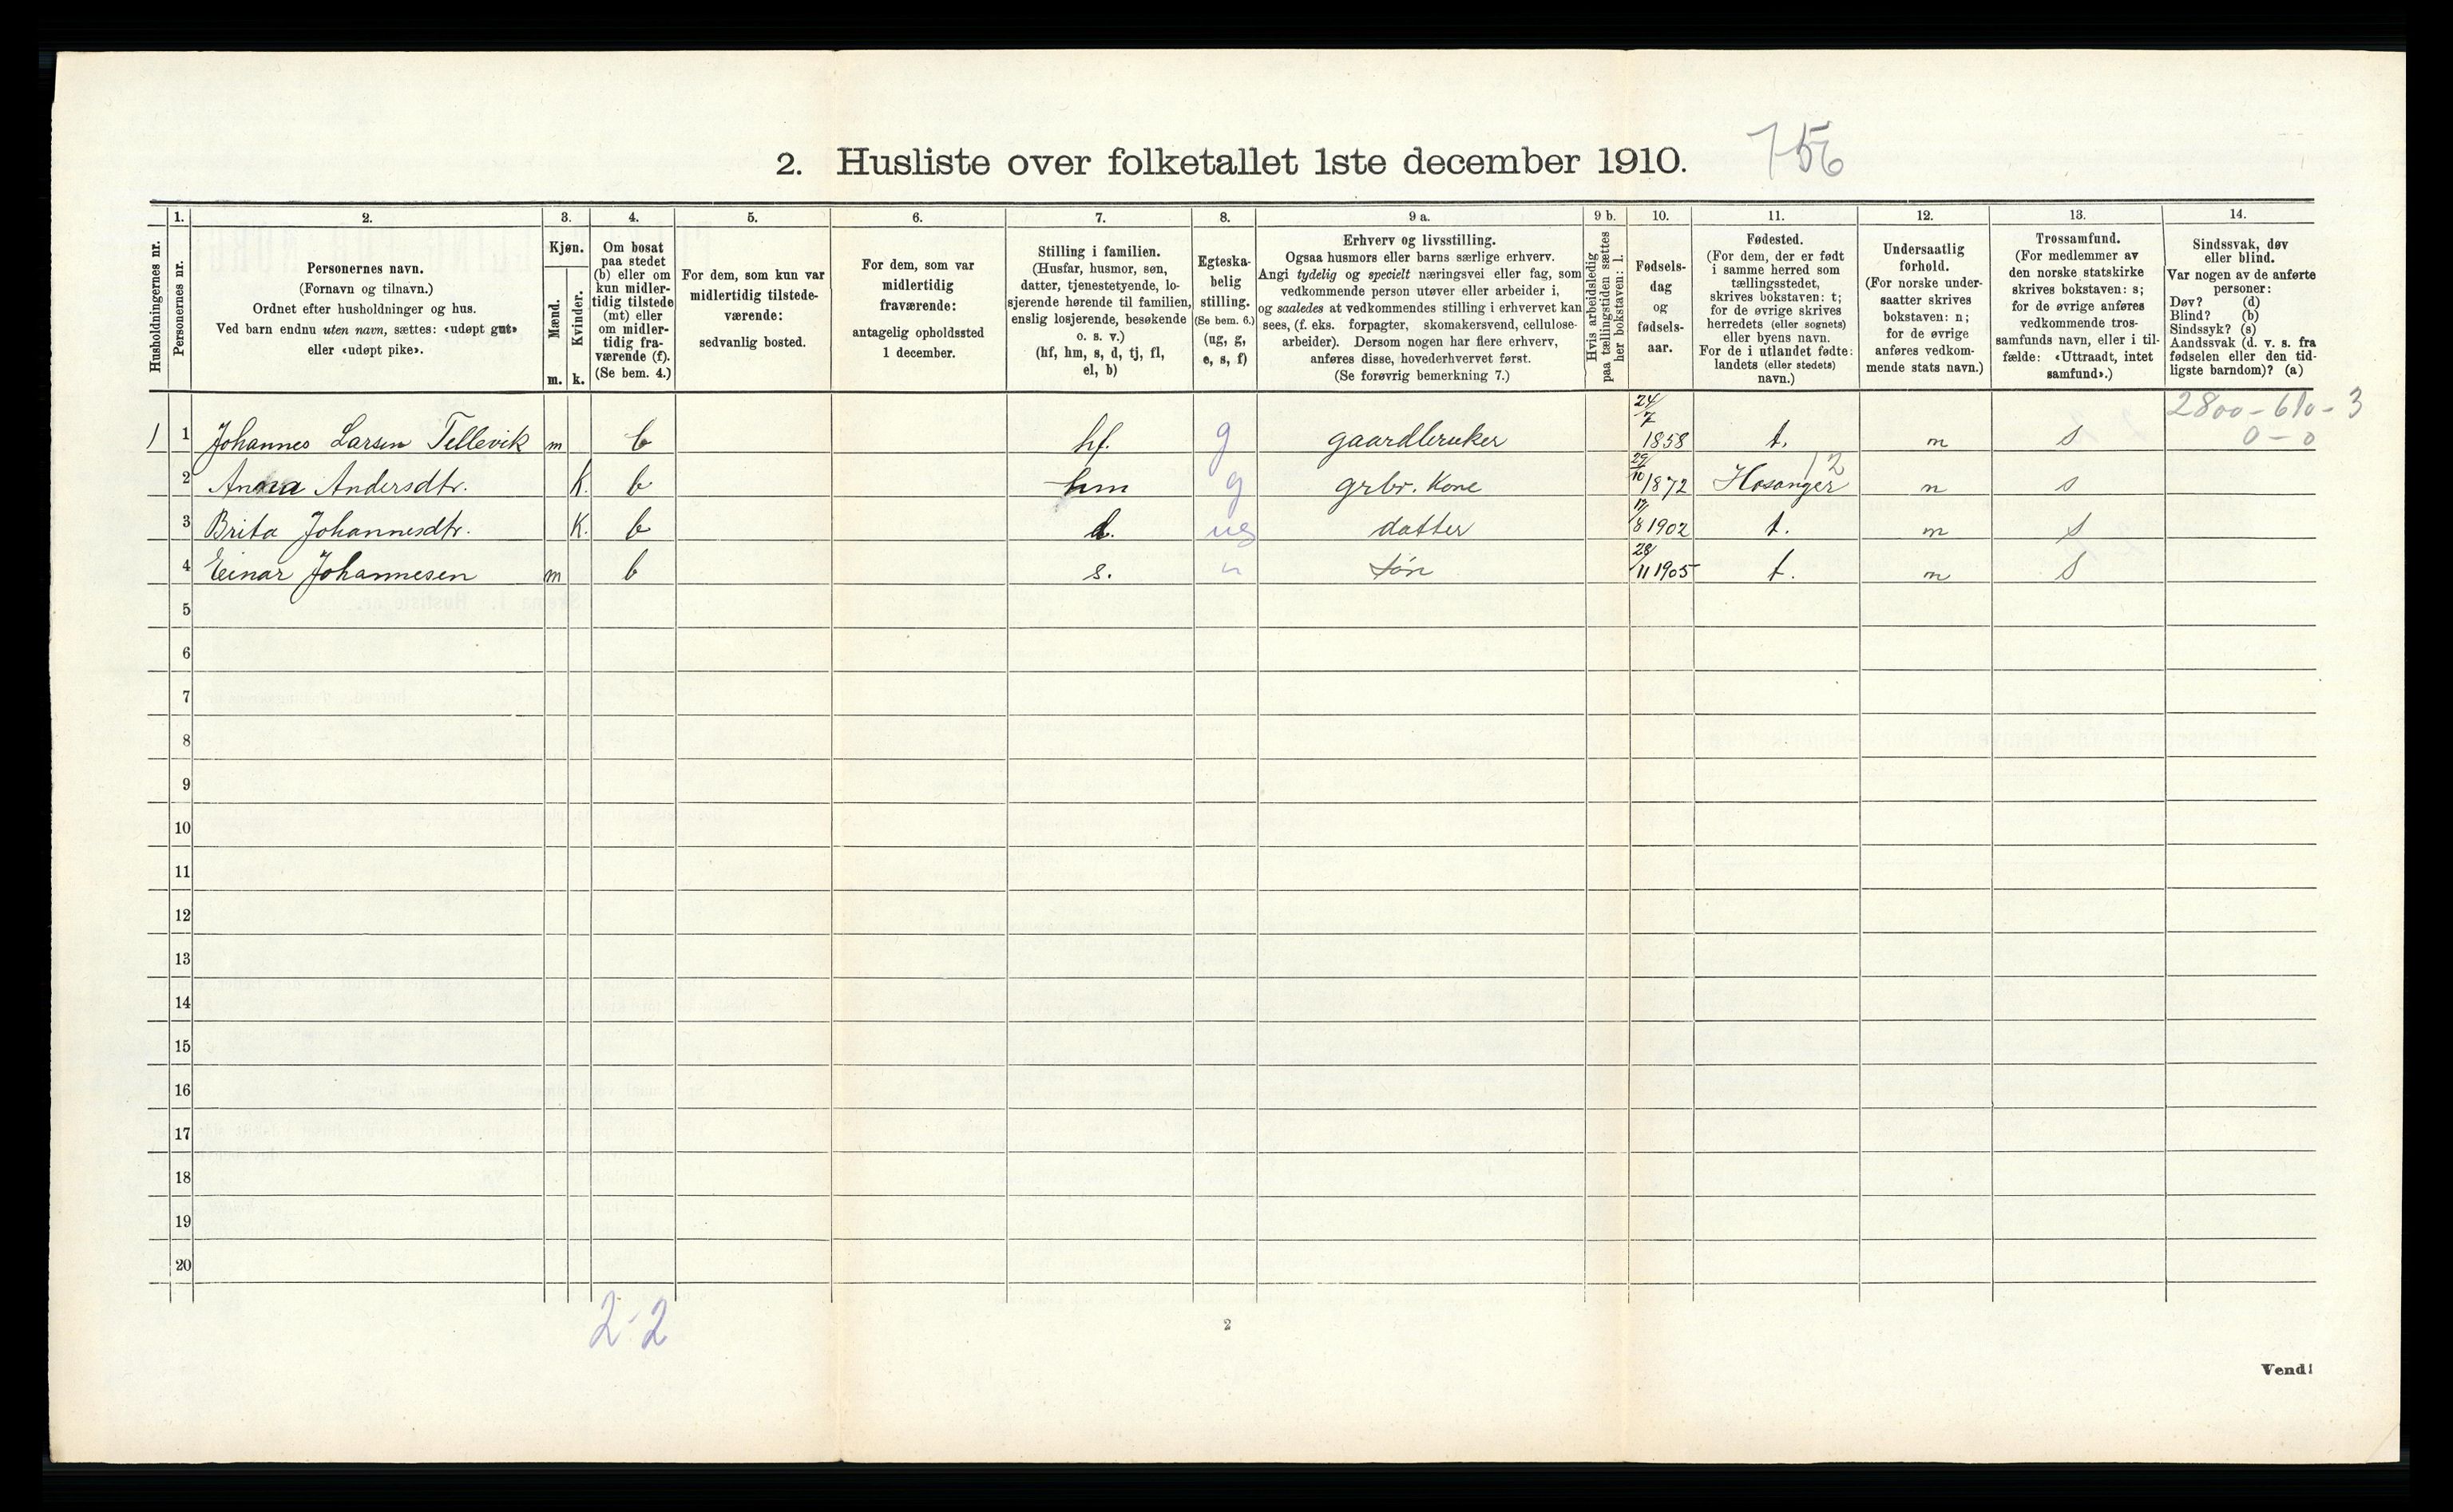 2. Husliste over folketallet 1ste december 1910. 756
1. 2. 3. 4. 5. 6. 7. 8. 9 a. 9 b. 10. 11. 12. 13. 14.
Husholdningernes nr.
Personernes nr.
Personernes navn.
(Fornavn og tilnavn.)
Ordnet efter husholdninger og hus.
Ved barn endnu uten navn, sættes: «udøpt gut»
eller «udøpt pike».
Kjøn.
Mænd.
m.
Kvinder.
k.
Om bosat
paa stedet
(b) eller om
kun midler-
tidig tilstede
(mt) eller
om midler-
tidig fra-
værende (f).
(Se bem. 4.)
For dem, som kun var
midlertidig tilstede-
værende:
sedvanlig bosted.
For dem, som var
midlertidig
fraværende:
antagelig opholdssted
1 december.
Stilling i familien.
(Husfar, husmor, søn,
datter, tjenestetyende, lo-
sjerende hørende til familien,
enslig losjerende, besøkende
o. s. v.)
(hf, hm, s, d, tj, fl,
el, b)
Egteska-
belig
stilling.
(Se bem. 6.)
(ug, g,
e, s, f)
Erhverv og livsstilling.
Ogsaa husmors eller barns særlige erhverv.
Angi tydelig og specielt næringsvei eller fag, som
vedkommende person utøver eller arbeider i,
og saaledes at vedkommendes stilling i erhvervet kan
sees, (f. eks. forpagter, skomakersvend, cellulose-
arbeider). Dersom nogen har flere erhverv,
anføres disse, hovederhvervet først.
(Se forøvrig bemerkning 7.)
Hvis arbeidsledig
paa tællingstiden sættes
her bokstaven: l.
Fødsels-
dag
og
fødsels-
aar.
Fødested.
(For dem, der er født
i samme herred som
tællingsstedet,
skrives bokstaven: t;
for de øvrige skrives
herredets (eller sognets)
eller byens navn.
For de i utlandet fødte:
landets (eller stedets)
navn.)
Undersaatlig
forhold.
(For norske under-
saatter skrives
bokstaven: n;
for de øvrige
anføres vedkom-
mende stats navn.)
Trossamfund.
(For medlemmer av
den norske statskirke
skrives bokstaven: s;
for de øvrige anføres
vedkommende tros-
samfunds navn, eller i til-
fælde: «Uttraadt, intet
samfund».)
Sindssvak, døv
eller blind.
Var nogen av de anførte
personer:
Døv? (d)
Blind? (b)
Sindssyk? (s)
Aandssvak (d. v. s. fra
fødselen eller den tid-
ligste barndom)? (a)
2800-610-3
0-0
1 1 Johannes Larsen Tellevik m b hf. g gaardbruker 24/7 1858 t. n s
2 Anna Andersdtr. K. b hm g grbr. Kone 29/10 1872 Hosanger 12 n s
3 Brita Johannesdtr. K. b d. ug datter 17/8 1902 t. n s
4 Einar Johannesen m b s. " søn 28/11 1905 t. n s
5
6
7
8
9
10
11
12
13
14
15
16
17
18
19
20
2-2
2
Vend!